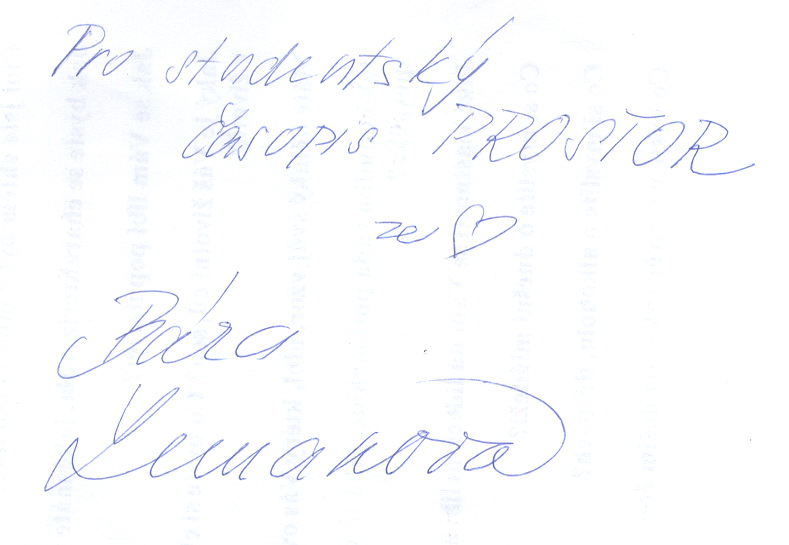 Pro studentský
časopis PROSTOR
ze ♡
Bára
Zemanová